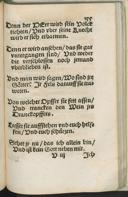 Denn der HErr wird sein Volck
richten / Und vber seine Knecht
wird er sich erbarmen.
Denn er wird ansehen / das sie gar
vmmgangen sind / Und weder
die verschlossen noch jemand
vberblieben ist.
Und man wird sagen / Wo sind jre
Götter? Jr Fels darauff sie
Von welcher Opffer sie fett assen /
Und truncken den Wein jres
Tranckopffers.
Lasset sie auffstehen vnd euch helfe
fen / Und euch schützen.
Sehet jr nu / das ich allein bin /
Und ist kein Gott neben mir.
Ich